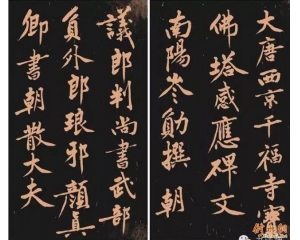 大唐西京千福寺多寳
佛塔感應碑文
南陽岑勛撰 朝
議郎判尚書武部
負外郎琅邪顔真
卿書朝散大夫